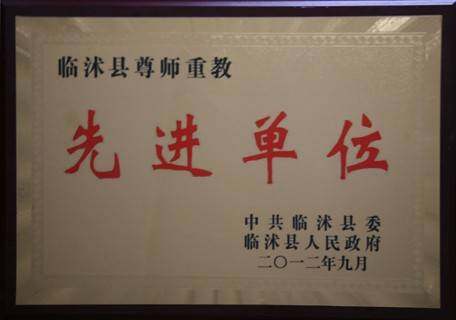 临沭县尊师重教
先进单位
中共临沭县委
临沭县人民政府
二〇一二年九月